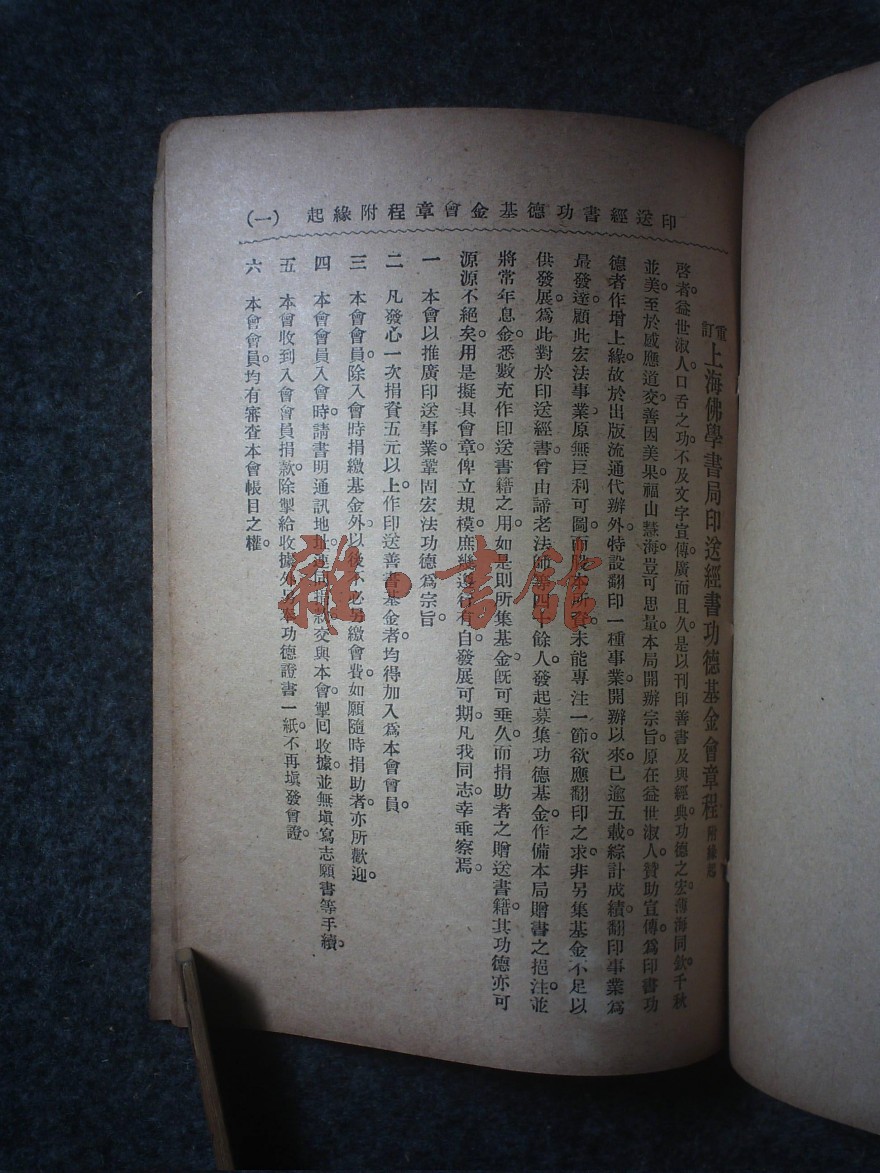 印送經書功德基金會章程附緣起 (一)
重訂上海佛學書局印送經書功德基金會章程附緣起
啓者。益世淑人。口舌之功。不及文字宣傳。廣而且久。是以刊印善書。及與經典。功德之宏。薄海同欽。千秋
並美。至於感應道交。善因美果。福山慧海。豈可思量。本局開辦宗旨。原在益世淑人。贊助宣傳。爲印書功
德者作增上緣。故於出版流通代辦外。特設翻印一種事業。開辦以來。已逾五載。綜計成績。翻印事業爲
最發達。顧此宏法事業。原無巨利可圖。而股本所資。未能專注一節。欲應翻印之求。非另集基金。不足以
供發展。爲此對於印送經書。曾由諦老法師等四十餘人。發起募集功德基金。作備本局贈書之挹注。並
將常年息金。悉數充作印送書籍之用。如是則所集基金。旣可垂久。而捐助者之贈送書籍。其功德亦可
源源不絕矣。用是擬具會章。俾立規模。庶幾遵行有自。發展可期。凡我同志。幸垂察焉。
一 本會以推廣印送事業。鞏固宏法功德爲宗旨。
二 凡發心一次捐資五元以上。作印送善書基金者。均得加入爲本會會員。
三 本會會員。除入會時捐繳基金外。以後不必另繳會費。如願隨時捐助者。亦所歡迎。
四 本會會員入會時。請書明通訊地址。連同捐款交與本會。掣回收據。並無塡寫志願書等手續。
五 本會收到入會會員捐款。除掣給收據外。另奉功德證書一紙。不再塡發會證。
六 本會會員。均有審查本會帳目之權。
雜·書館